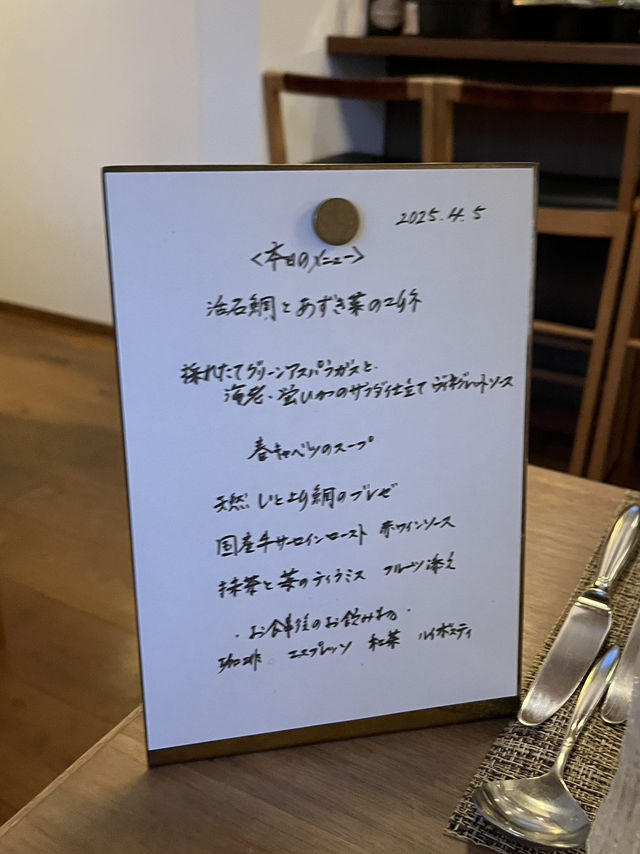 2025.4.5
<本日のメニュー>
活石鯛とあずき菜のマリネ
採れたてグリーンアスパラガスと、
海老、蛍いかのサラダ仕立て ヴィネグレットソース
春キャベツのスープ
天然 いとより鯛のブレゼ
国産牛サーロインロースト 赤ワインソース
抹茶と苺のティラミス フルーツ添え
・お食事後のお飲み物・
珈琲 エスプレッソ 紅茶 ルイボスティ